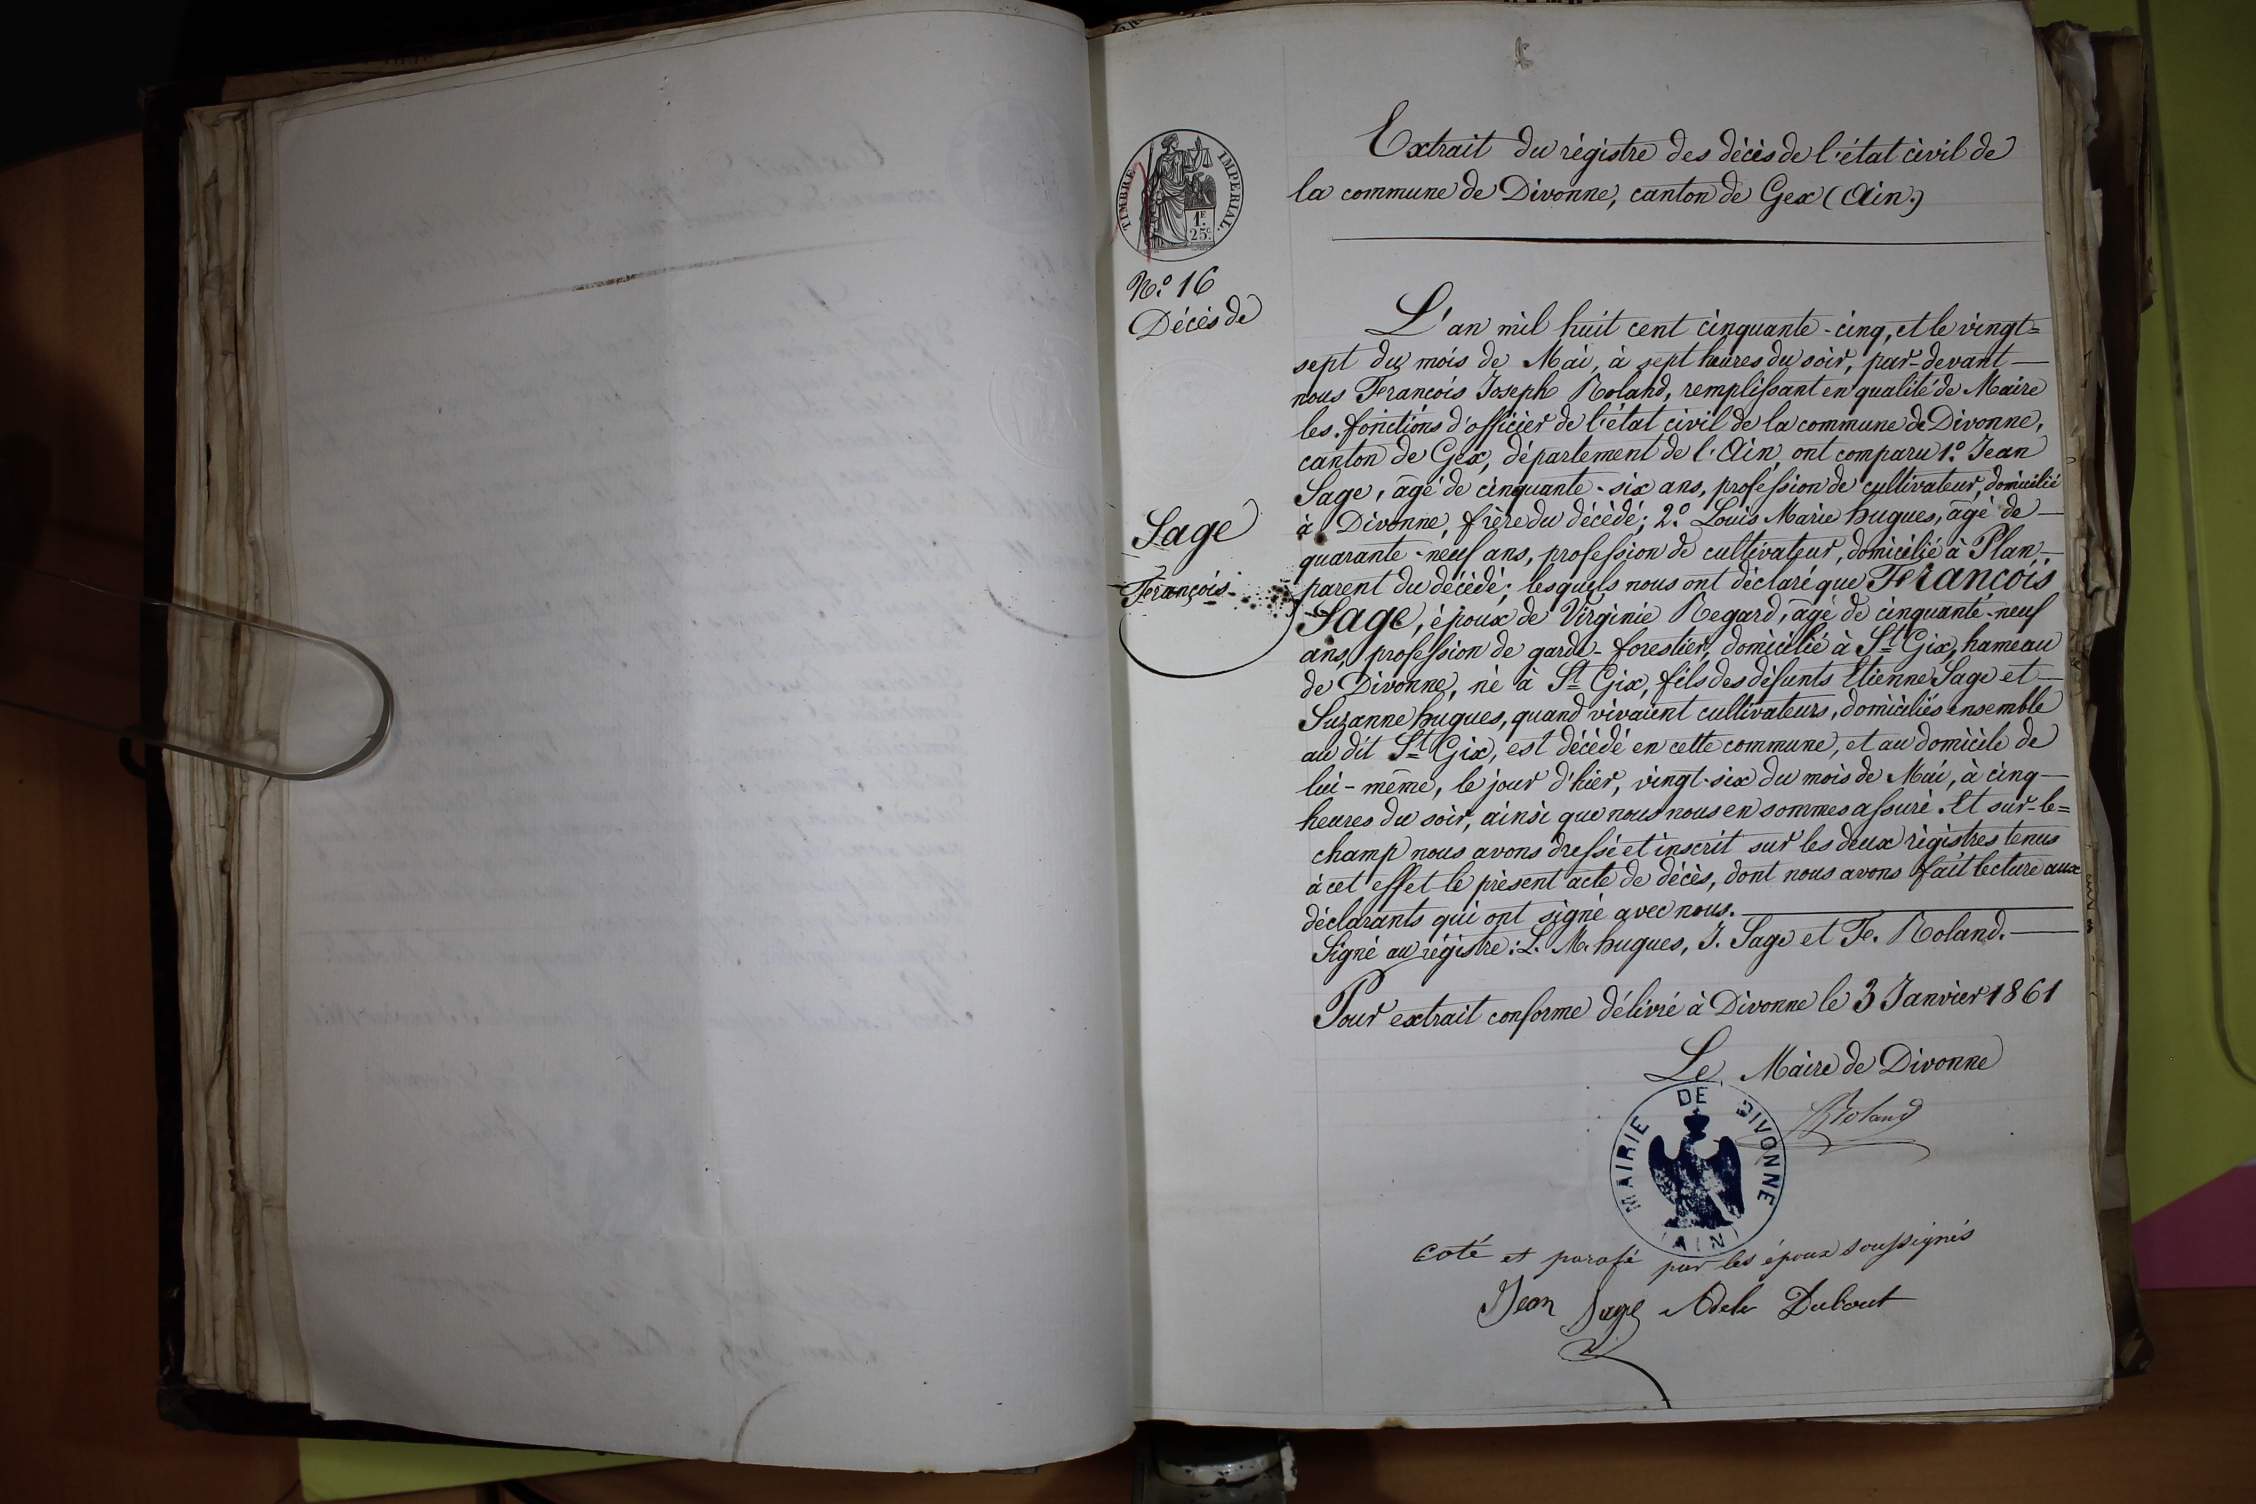 Extrait du régistre des décès de l'état civil de
la commune de Divonne, canton de Gex (Ain.)
TIMBRE IMPERIAL.
1F.
25c.
No. 16
Décès de
Sage
François
L'an mil huit cent cinquante-cinq, et le vingt=
sept du mois de Mai, à sept heures du soir, par-devant
nous François Joseph Roland, remplissant en qualité de Maire
les fonctions d'officier de l'état civil de la commune de Divonne,
canton de Gex, département de l'Ain ont comparu 1.o Jean
Sage, agé de cinquante-six ans, profession de cultivateur, domicilié
à Divonne, frère du décédé; 2.o Louis Marie hugues, agé de
quarante-neuf ans, profession de cultivateur, domicilié à Plan
parent du décédé; lesquels nous ont déclaré que François
Sage, époux de Virginie Regard, agé de cinquante-neuf
ans, profession de garde-forestier, domicilié à St Gix, hameau
de Divonne, né à St Gix, fils des défunts Etienne Sage et
Suzanne hugues, quand vivaient cultivateurs, domiciliés ensemble
au dit St Gix, est décédé en cette commune, et au domicile de
lui-même, le jour d'hier, vingt-six du mois de Mai, à cinq
heures du soir, ainsi que nous nous en sommes assuré. Et sur-le=
champ nous avons dressé et inscrit sur les deux régistres tenus
à cet effet le présent acte de décès, dont nous avons fait lecture aux
déclarants qui ont signé avec nous.
Signé au régistre: L. M. hugues, J. Sage et Fs. Roland.
Pour extrait conforme délivré à Divonne le 3 Janvier 1861
Le Maire de Divonne
Roland
MAIRIE DE DIVONNE
(AIN)
Coté et parafé par les époux soussignés
Jean Sage Adele Dubout